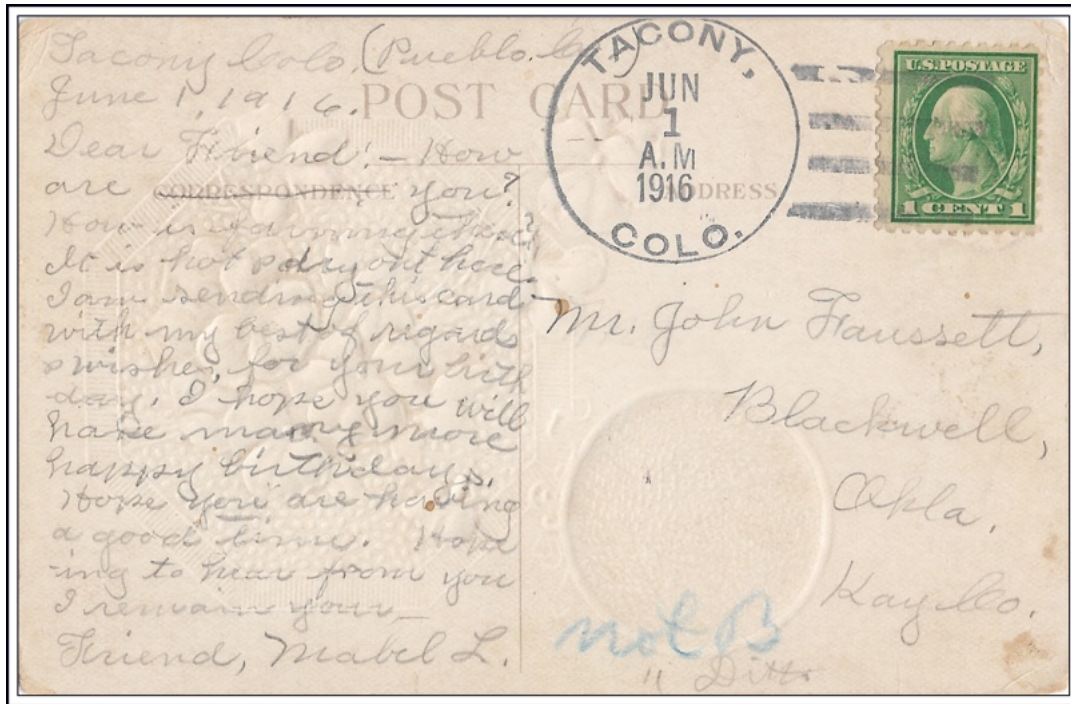 Tacony Colo. (Pueblo. Co
June 1, 1916.
POST CARD
Dear Friend! – How
are you?
CORRESPONDENCE
How is farming there?
It is hot & dry out here.
I am sending this card
with my best of regards
& wishes, for your birth
day. I hope you will
have many more
happy birthdays.
Hope you are having
a good time. Hope
-ing to hear from you
I remain your –
Friend, Mabel L.
TACONY,
JUN
1
A.M
1916
COLO.
ADDRESS
U.S. POSTAGE
1 CENT 1
Mr. John Faussett,
Blackwell,
Okla.
Kay Co.
not B
" Ditto